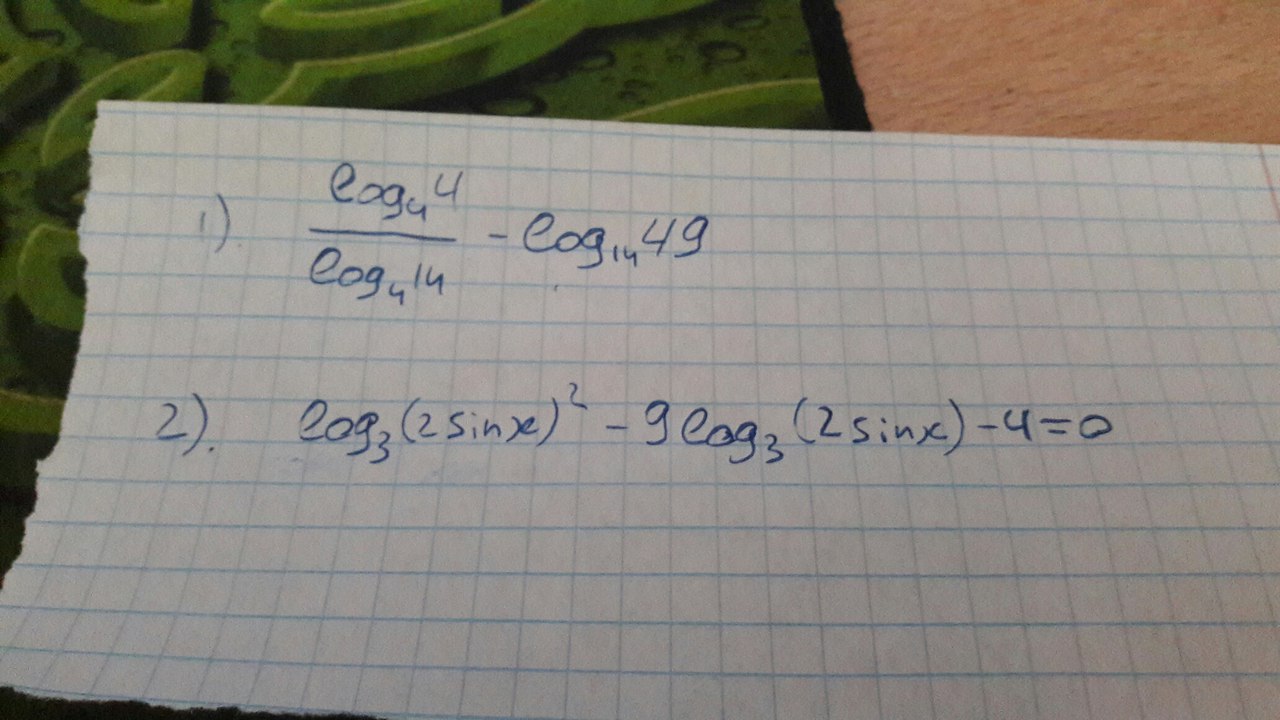 1) log₄4 / log₄14 - log₁₄49
2). log₃(2sinx)² - 9log₃(2sinx) - 4 = 0